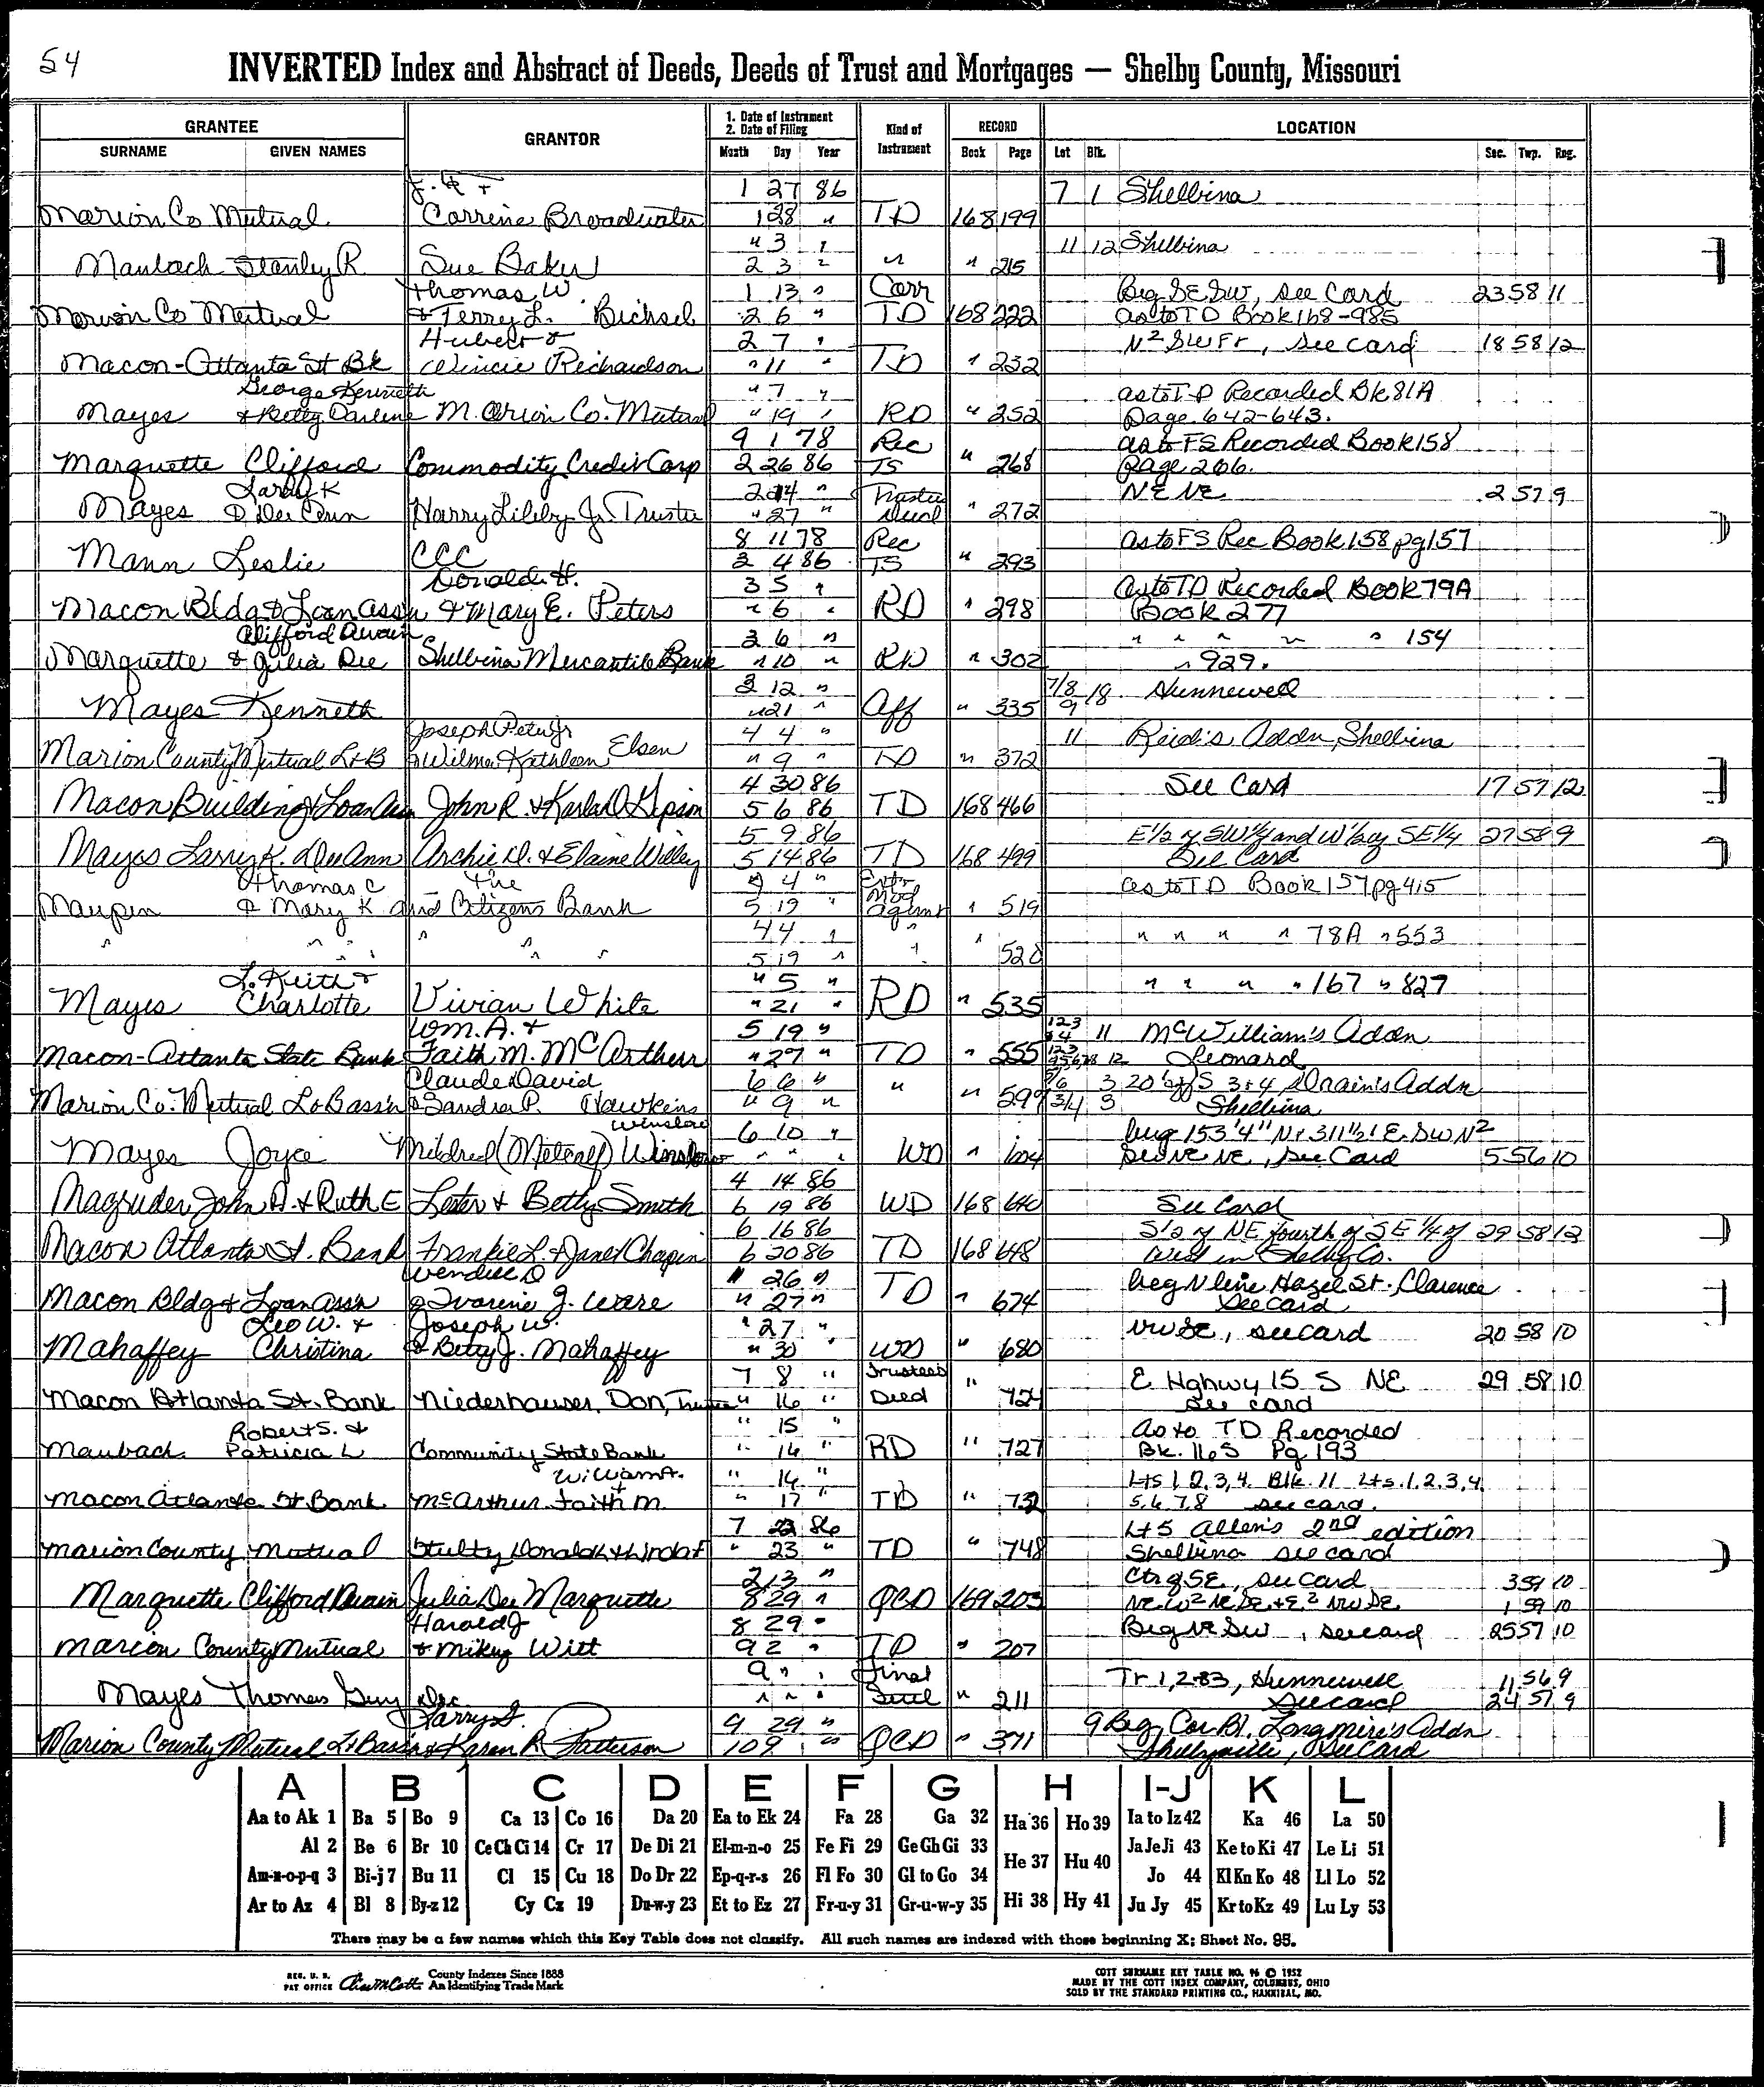 54
INVERTED Index and Abstract of Deeds, Deeds of Trust and Mortgages — Shelby County, Missouri
GRANTEE GRANTOR 1. Date of Instrument 2. Date of Filing Kind of Instrument RECORD LOCATION
SURNAME GIVEN NAMES Month Day Year Book Page Lot Blk. Sec. Twp. Rng.
1 27 86 7 1 Shelbina
Marion Co Mutual Carrine Broadwater 1 28 " TD 168 199
" 3 " 11 12 Shelbina
Maubach Stanley R Sue Baker 2 3 " " " 215
Thomas W. 1 13 " Corr Beg SE SW, see Card 23 58 11
Marion Co Mutual & Terry L. Bichsel 2 6 " TD 168 222 as to TD Book 168-985
Hubert & 2 7 " N2 SW Fr, see card 18 58 12
Macon-Atlanta St Bk Wincie Richardson " 11 " TD " 232
George Kenneth " 7 " as to TD Recorded Bk 81A
Mayes & Betty Darlene Marion Co. Mutual " 19 " RD " 252 Page 642-643.
9 1 78 Rec as to FS Recorded Book 158
Marquette Clifford Commodity Credit Corp 2 26 86 TS " 268 Page 266.
Larry K 2 24 " Trustee NE NE 2 57 9
Mayes & Dee Ann Harry Libby Jr. Trustee " 27 " Deed " 272
8 11 78 Rec as to FS Rec Book 158 pg 157
Mann Leslie CCC 3 4 86 TS " 293
Donald H. 3 5 " as to TD Recorded Book 79A
Macon Bldg & Loan Ass'n & Mary E. Peters " 6 " RD " 298 Book 277
Clifford Dwain 3 6 " " " " " " 154
Marquette & Julia Dee Shelbina Mercantile Bank " 10 " RD " 302 " 929.
3 12 " 7/8 9 18 Hunnewell
Mayes Kenneth " 21 " Aff " 335
Joseph Peter Jr 4 4 " 11 Reid's Addn, Shelbina
Marion County Mutual L&B & Wilma Kathleen Elsen " 9 " TD " 372
4 30 86 See Card 17 57 12
Macon Building & Loan Ass John R. & Karla D Gipson 5 6 86 TD 168 466
5 9 86 E 1/2 of SW 1/4 and W 1/2 of SE 1/4 27 58 9
Mayes Larry K. & Dee Ann Archie D. & Elaine Willey 5 14 86 TD 168 499 See Card
Thomas C The 4 4 " Extn Mod as to TD Book 157 pg 415
Maupin & Mary K and Citizens Bank 5 19 " agrmt " 519
4 4 " " " " " " 78A " 553
" " " " " " " 5 19 " " 520
L. Keith & " 5 " " " " " 167 " 827
Mayes Charlotte Vivian White " 21 " RD " 535
Wm. A. & 5 19 " 11 McWilliam's Addn
Macon-Atlanta State Bank Faith M. McArthur " 27 " TD " 555 12 Leonard
Claude David 6 6 " " 5/6 3 20' off S 3&4, Drain's Addn
Marion Co. Mutual L&B ass'n & Sandra P. Hawkins " 9 " " 599 3/4 3 Shelbina
Winslow 6 10 " beg 153'4" N & 311 1/2' E. SW N2
Mayes Joyce Mildred (Metcalf) Winslow " " " WD " 604 NE, see Card 5 56 10
4 14 86
Magruder John A. & Ruth E Lester & Betty Smith 6 19 86 WD 168 640 See Card
6 16 86 S 1/2 of NE fourth of SE 1/4 of 29 58 12
Macon Atlanta St. Bank Frankie L. & Janet Chapin 6 20 86 TD 168 648 West in Shelby Co.
Wendell D " 26 " beg N line Hazel St. Clarence
Macon Bldg & Loan Ass'n & Ivarine J. Ware " 27 " TD " 674 See card
Leo W. & Joseph W. " 27 " NW SE, see card 20 58 10
Mahaffey Christina & Betty J. Mahaffey " 30 " WD " 680
7 8 " Trustees E Hghwy 15 S NE 29 58 10
Macon Atlanta St. Bank Niederhauser, Don, Trustee " 16 " Deed " 724 See card
Robert S. & " 15 " As to TD Recorded
Maubach Patricia L Community State Bank " 16 " RD " 727 Bk. 165 Pg 193
William A. & " 14 " Lts 1,2,3,4. Blk. 11 Lts. 1,2,3,4,
Macon Atlanta St Bank McArthur Faith M. " 17 " TD " 732 5,6,7,8 see card.
7 22 86 Lt 5 Allen's 2nd edition
Marion County Mutual Stultz Donald & Linda F " 23 " TD " 748 Shelbina see card
2 13 " Ctr of SE, see Card 3 59 10
Marquette Clifford Dwain Julia Dee Marquette 8 29 " QCD 169 203 NE W2 NE SE & E2 NW SE 1 59 10
Harold J 8 29 " Beg NE SW, see card 25 57 10
Marion County Mutual & Mikey Witt 9 2 " TD " 207
9 " " Final Tr 1, 2 & 3, Hunnewell 11 56 9
Mayes Thomas Guy Dec. " " " Settl " 211 See card 24 57 9
Larry G. 9 29 " 9 Beg Cor Bl. Longmire's Addn
Marion County Mutual L&B ass'n & Karen R Patterson 10 9 " QCD " 371 Shelbyville, See Card
A B C D E F G H I-J K L
Aa to Ak 1 Ba 5 Bo 9 Ca 13 Co 16 Da 20 Ea to Ek 24 Fa 28 Ga 32 Ha 36 Ho 39 Ia to Iz 42 Ka 46 La 50
Al 2 Be 6 Br 10 Ce Ch Ci 14 Cr 17 De Di 21 El-m-n-o 25 Fe Fi 29 Ge Gh Gi 33 He 37 Hu 40 Ja Je Ji 43 Ke to Ki 47 Le Li 51
Am-n-o-p-q 3 Bi-j 7 Bu 11 Cl 15 Cu 18 Do Dr 22 Ep-q-r-s 26 Fl Fo 30 Gl to Go 34 Jo 44 Kl Kn Ko 48 Ll Lo 52
Ar to Az 4 Bl 8 By-z 12 Cy Cz 19 Du-w-y 23 Et to Ez 27 Fr-u-y 31 Gr-u-w-y 35 Hi 38 Hy 41 Ju Jy 45 Kr to Kz 49 Lu Ly 53
There may be a few names which this Key Table does not classify. All such names are indexed with those beginning X; Sheet No. 95.
REG. U. S. PAT OFFICE County Indexes Since 1888 An Identifying Trade Mark
COTT SURNAME KEY TABLE NO. 96 © 1952
MADE BY THE COTT INDEX COMPANY, COLUMBUS, OHIO
SOLD BY THE STANDARD PRINTING CO., HANNIBAL, MO.